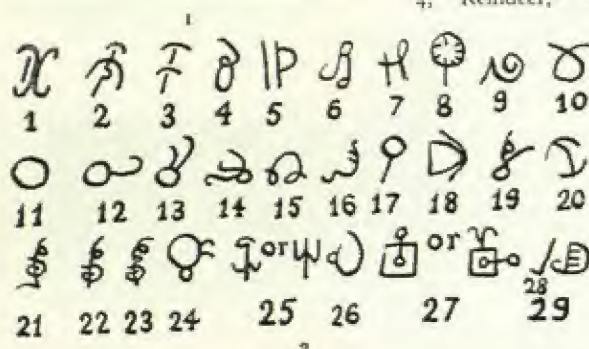 4, Reindeer,
1
1 2 3 4 5 6 7 8 9 10
11 12 13 14 15 16 17 18 19 20
or or
28
21 22 23 24 25 26 27 29